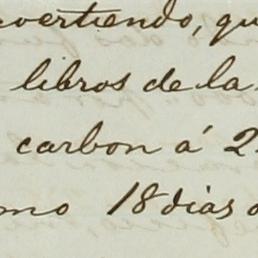 vertiendo, qu
libros de la
carbon á 2
mo 18 dias